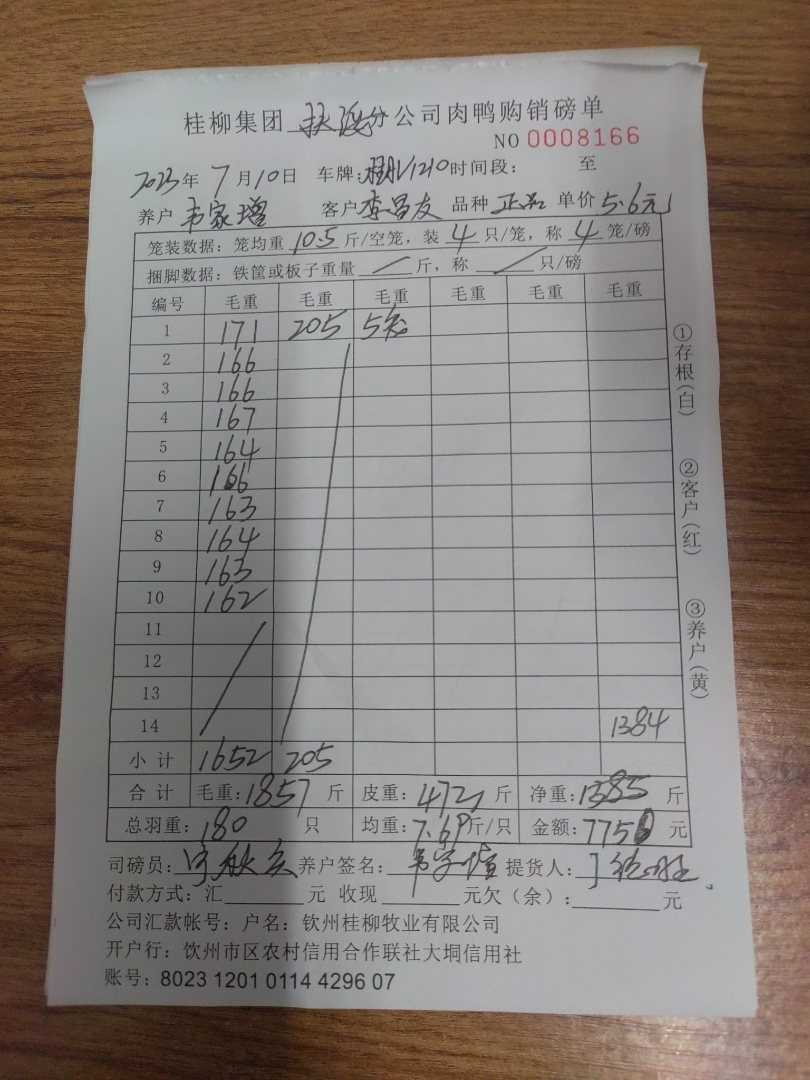 桂柳集团 扶 分公司肉鸭购销磅单
NO 0008166
2023年 7 月 10 日 车牌: 1210 时间段: 至
养户 韦家增 客户 李昌友 品种 正品 单价 5.6元
笼装数据: 笼均重 10.5 斤/空笼, 装 4 只/笼, 称 4 笼/磅
捆脚数据: 铁筐或板子重量 / 斤, 称 / 只/磅
编号 毛重 毛重 毛重 毛重 毛重 毛重
1 171 205 5笼
2 166
3 166
4 167
5 164
6 166
7 163
8 164
9 163
10 162
11
12
13
14 1384
小计 1652 205
合计 毛重: 1857 斤 皮重: 472 斤 净重: 1385 斤
总羽重: 180 只 均重: 7.69 斤/只 金额: 7750 元
司磅员: 养户签名: 韦家增 提货人:
付款方式: 汇 元 收现 元欠(余): 元
公司汇款帐号: 户名: 钦州桂柳牧业有限公司
开户行: 钦州市区农村信用合作联社大垌信用社
账号: 8023 1201 0114 4296 07
①存根(白)
②客户(红)
③养户(黄)